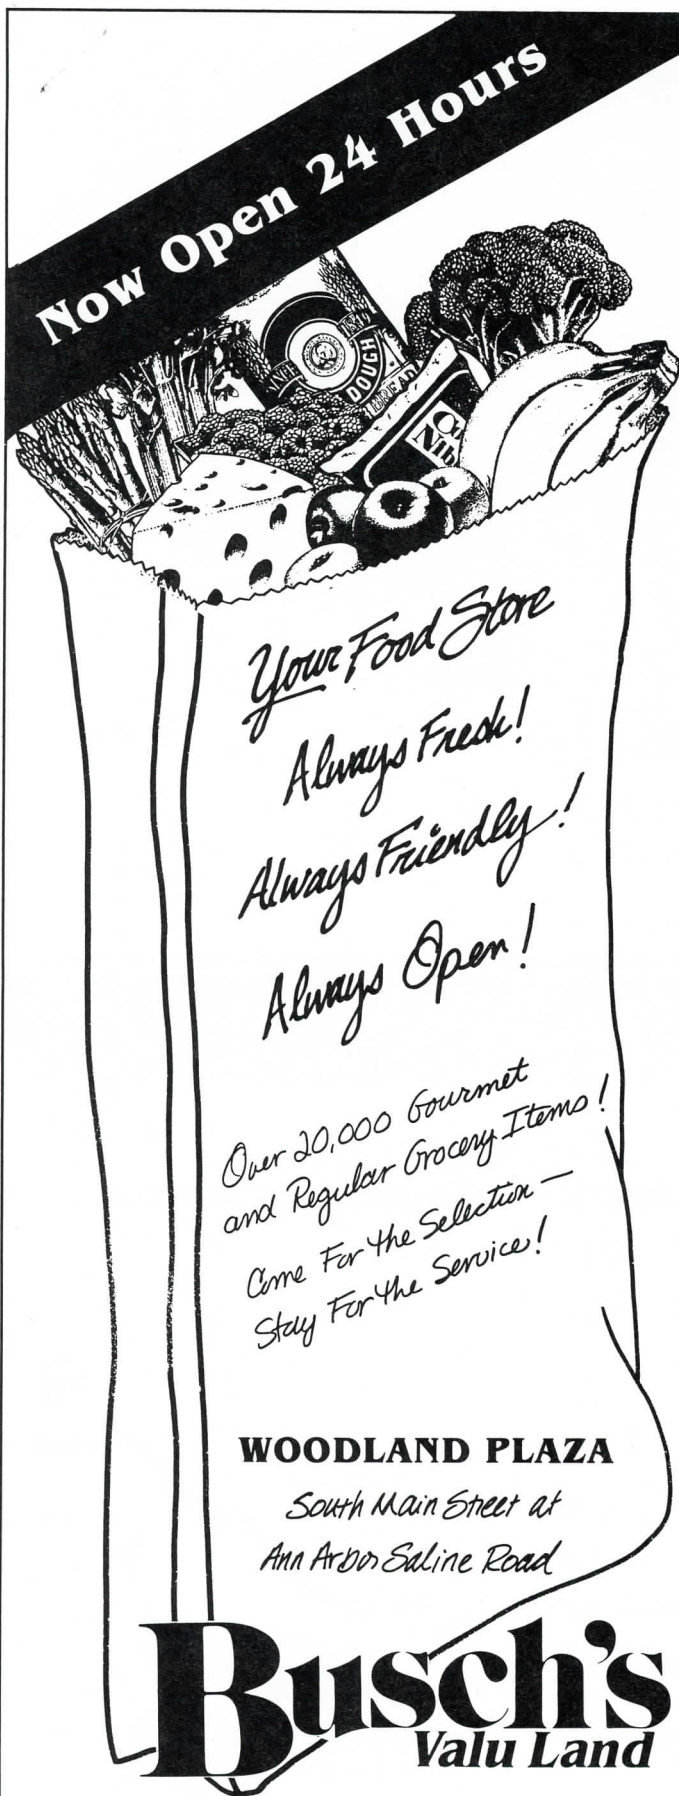 Now Open 24 Hours
DOUGH
BREAD
Your Food Store
Always Fresh!
Always Friendly!
Always Open!
Over 20,000 Gourmet
and Regular Grocery Items!
Come For the Selection —
Stay For the Service!
WOODLAND PLAZA
South Main Street at
Ann Arbor Saline Road
Busch's
Valu Land